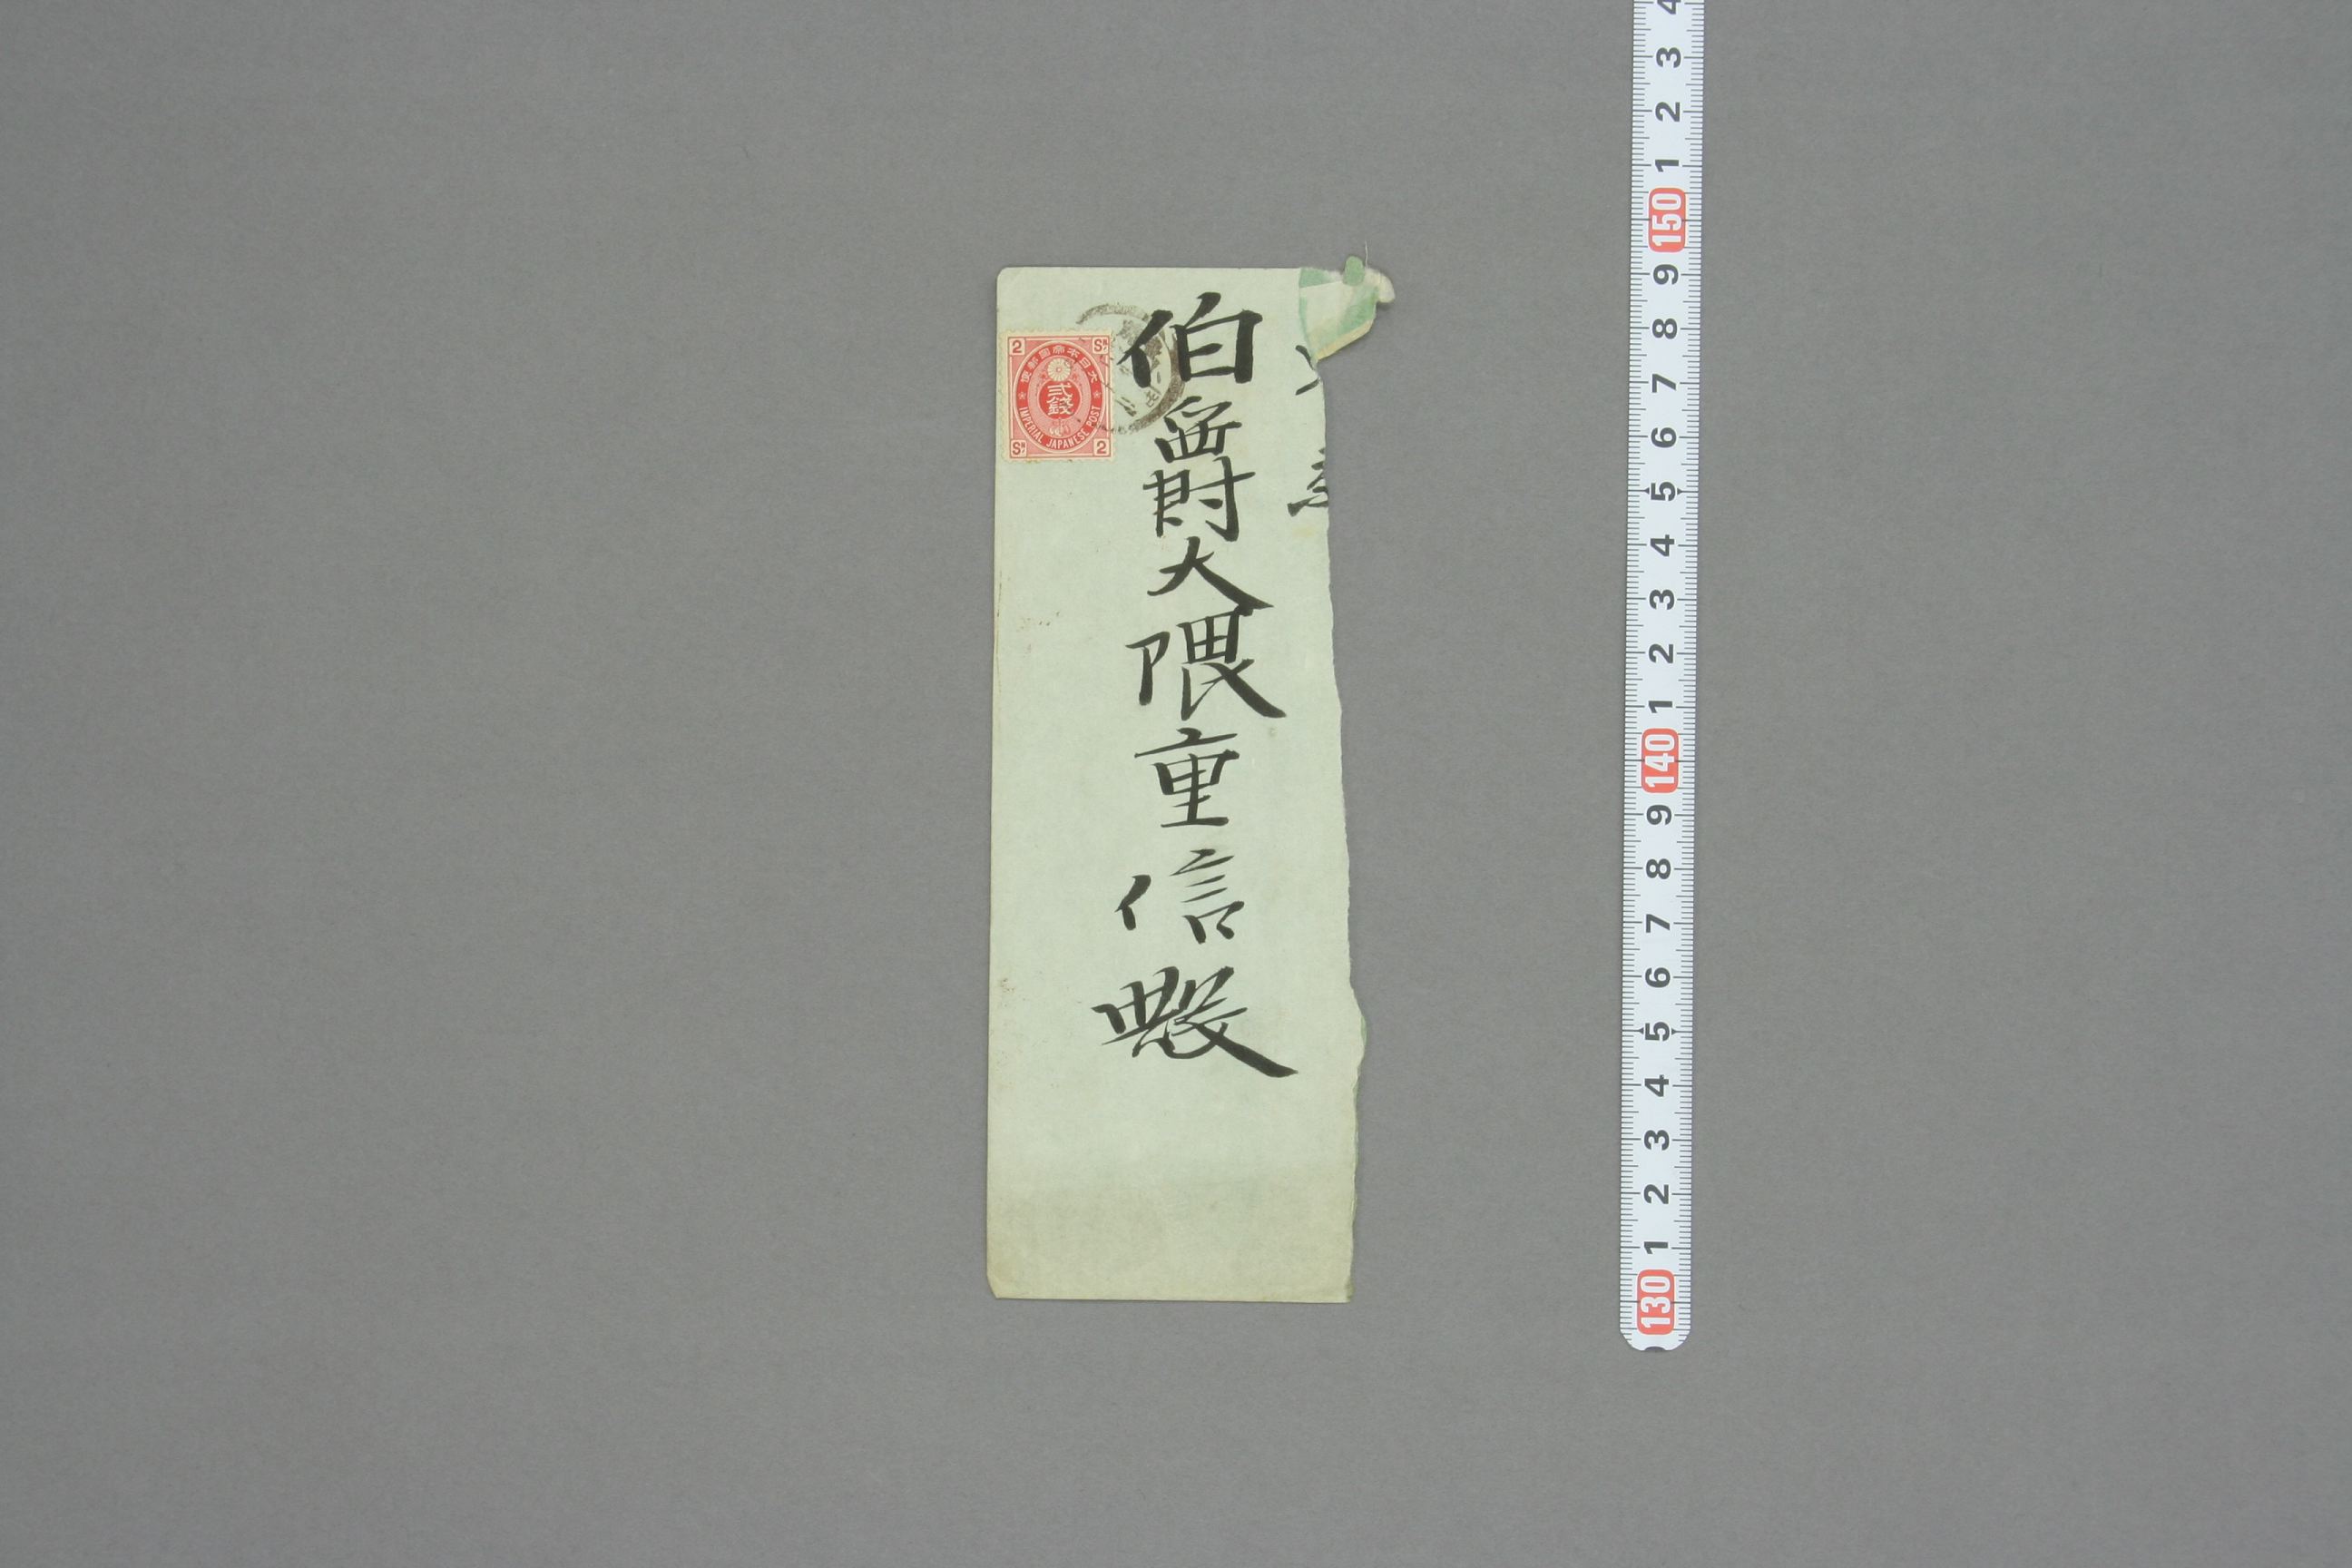 伯爵大隈重信殿
2 SN
大日本帝國郵便
貳錢
IMPERIAL JAPANESE POST
SN 2
4
3
2
1
150
9
8
7
6
5
4
3
2
1
140
9
8
7
6
5
4
3
2
1
130